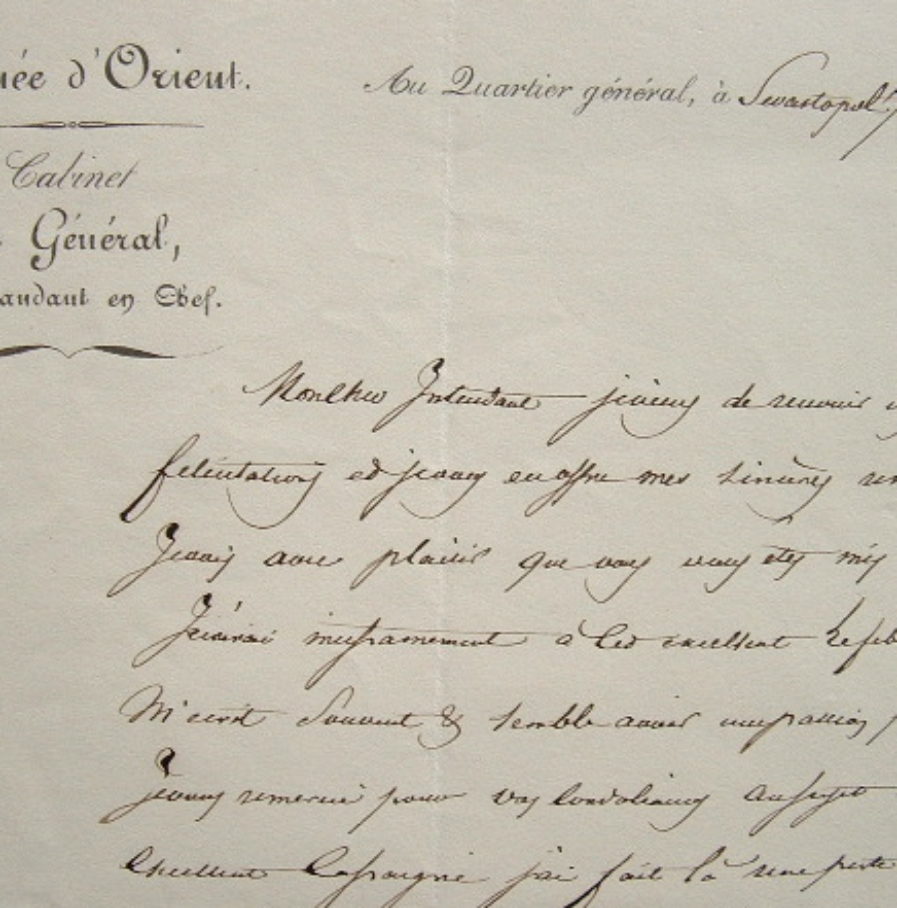 ée d'Orient.
Au Quartier général, à Sevastopol
Cabinet
Général,
andant en Chef.
Mon cher Intendant je viens de recevoir
félicitations et je vous en offre mes sincères
Je vois avec plaisir que vous vous etes mis
J'écrirai incessamment à cet excellent
M'écrit souvent & semble avoir une passion
Je vous remercie pour vos condoléances au sujet
Excellent Cassaigne j'ai fait là une perte